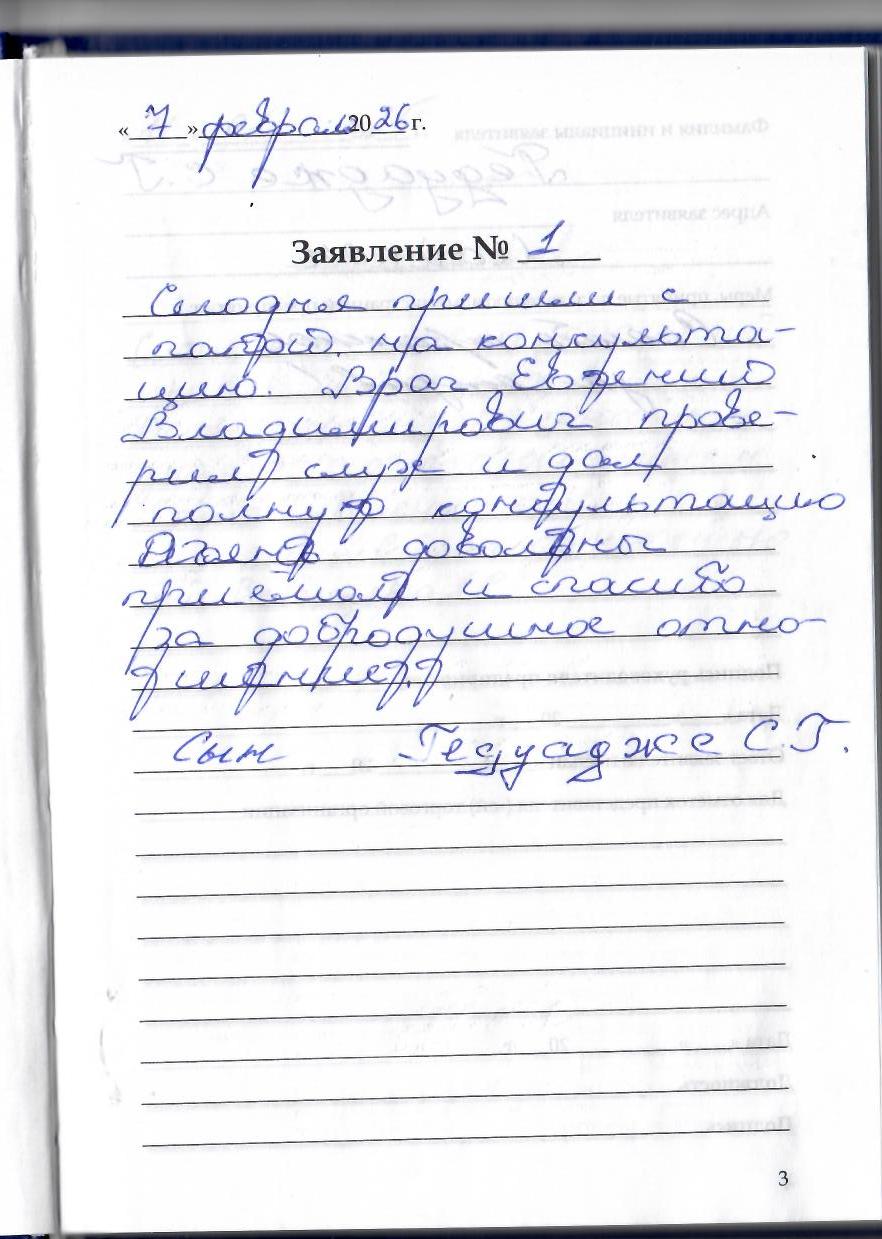 «7» феврал 2026 г.
Заявление № 1
Сегодня пришли с
папой на консульта-
цию. Врач Евгений
Владимирович прове-
рил слух и дал
полную консультацию
Очень довольны
приёмом и спасибо
за добродушное отно-
шение.
Сын Гедуадже С.Г.
3